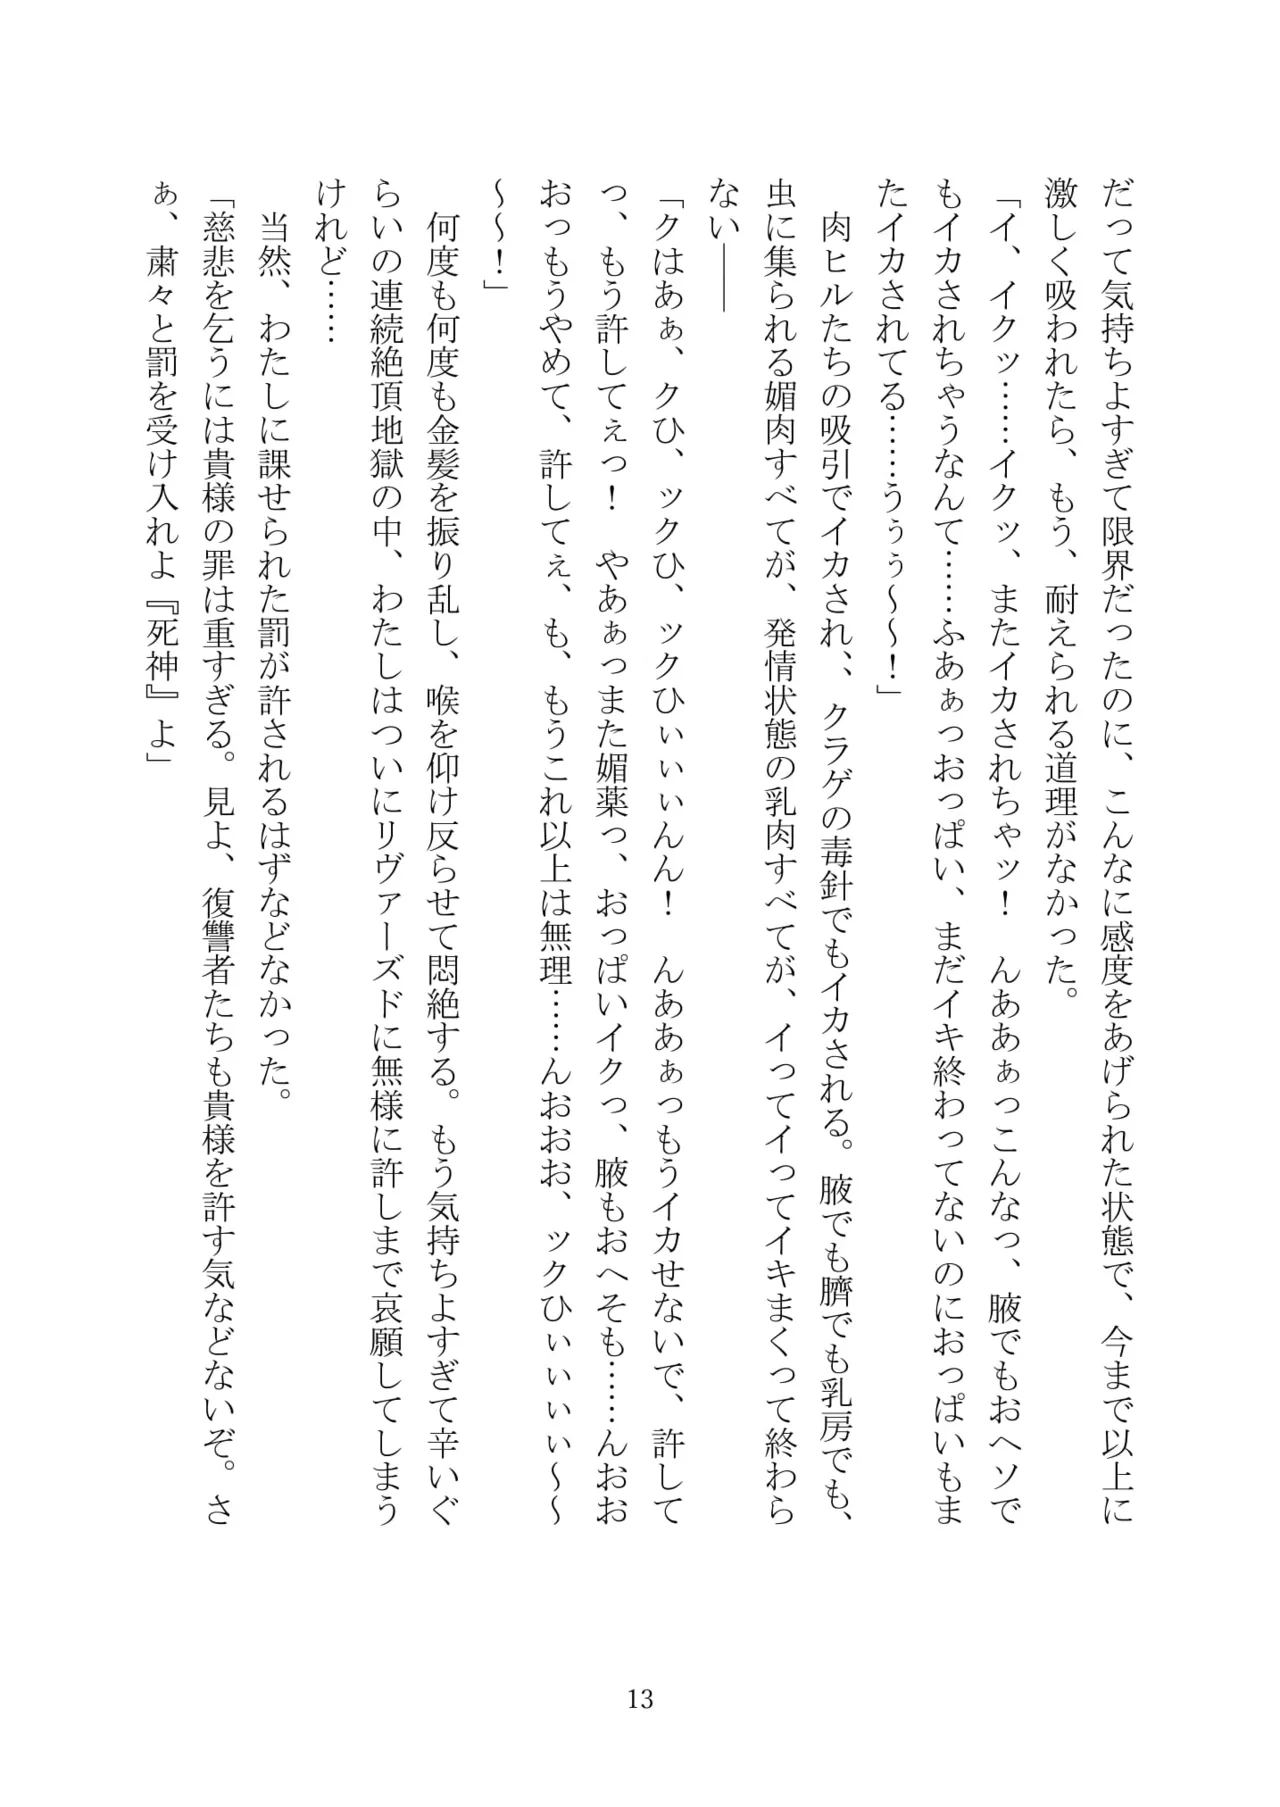 だって気持ちよすぎて限界だったのに、こんなに感度をあげられた状態で、今まで以上に
激しく吸われたら、もう、耐えられる道理がなかった。
「イ、イクッ……イクッ、またイカされちゃッ！　んああぁっこんなっ、腋でもおヘソで
もイカされちゃうなんて……ふあぁっおっぱい、まだイキ終わってないのにおっぱいもま
たイカされてる……うぅぅ～～！」
　肉ヒルたちの吸引でイカされ、、クラゲの毒針でもイカされる。腋でも臍でも乳房でも、
虫に集られる媚肉すべてが、発情状態の乳肉すべてが、イってイってイキまくって終わら
ない――
「クはあぁ、クひ、ックひ、ックひぃぃぃんん！　んああぁっもうイカせないで、許して
っ、もう許してぇっ！　やあぁっまた媚薬っ、おっぱいイクっ、腋もおへそも……んおお
おっもうやめて、許してぇ、も、もうこれ以上は無理……んおおお、ックひぃぃぃぃ～～
～～！」
　何度も何度も金髪を振り乱し、喉を仰け反らせて悶絶する。もう気持ちよすぎて辛いぐ
らいの連続絶頂地獄の中、わたしはついにリヴァーズドに無様に許しまで哀願してしまう
けれど……
　当然、わたしに課せられた罰が許されるはずなどなかった。
「慈悲を乞うには貴様の罪は重すぎる。見よ、復讐者たちも貴様を許す気などないぞ。さ
ぁ、粛々と罰を受け入れよ『死神』よ」
13